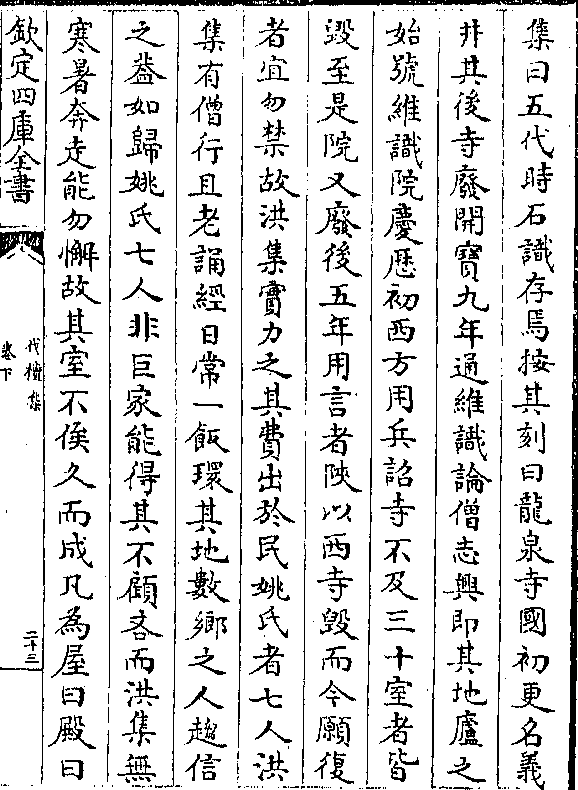 集曰五代時石識存焉按其刻曰龍泉寺國初更名義
井其後寺廢開寶九年通維識論僧志興即其地廬之
始號維識院慶厯初西方用兵詔寺不及三十室者皆
毀至是院又廢後五年用言者陜以西寺毀而今願復
者宜勿禁故洪集實力之其費出於民姚氏者七人洪
集有僧行且老誦經日常一飯環其地數鄉之人趨信
之葢如歸姚氏七人非巨家能得其不顧吝而洪集無
寒暑奔走能勿懈故其室不俟久而成凡為屋曰殿曰
欽定四庫全書
代檀集
卷下
二十三